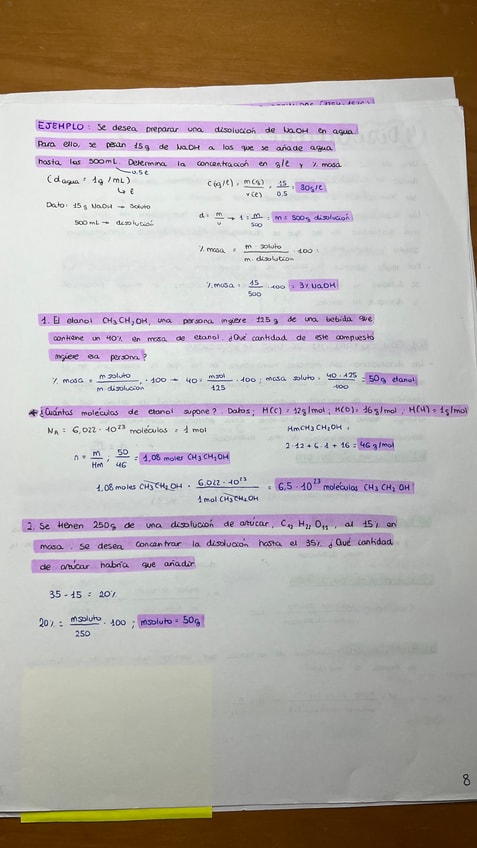 EJEMPLO: Se desea preparar una disolución de NaOH en agua.
Para ello, se pesan 15g de NaOH a los que se añade agua
hasta los 500mL. Determina la concentración en g/l y % masa
0.5 l
(d agua = 1g/mL)
↳ l
C(g/l) = m(g)/v(l) = 15/0.5 = 30g/l
Dato: 15g NaOH → soluto
500mL → disolución
d = m/v → 1 = m/500 = m = 500g disolución
% masa = m. soluto/m. disolución · 100
% masa = 15/500 · 100 = 3% NaOH
1. El etanol CH3CH2OH, una persona ingiere 125g de una bebida que
contiene un 40% en masa de etanol ¿Qué cantidad de este compuesto
ingiere esa persona?
% masa = m soluto/m disolución · 100 → 40 = msol/125 · 100; masa soluto = 40·125/100 = 50g etanol
¿Cuántas moléculas de etanol supone? Datos; M(C) = 12g/mol, M(O) = 16g/mol, M(H) = 1g/mol
NA = 6,022 · 10^23 moléculas = 1 mol
HmCH3CH2OH =
2·12 + 6·1 + 16 = 46g/mol
n = m/Hm; 50/46 = 1,08 moles CH3CH2OH
1,08 moles CH3CH2OH · 6,022·10^23/1 mol CH3CH2OH = 6,5·10^23 moléculas CH3CH2OH
2. Se tienen 250g de una disolución de azúcar, C12 H22 O11, al 15% en
masa. Se desea concentrar la disolución hasta el 35% ¿Qué cantidad
de azúcar habría que añadir
35 - 15 = 20%
20% = msoluto/250 · 100; msoluto = 50g
8